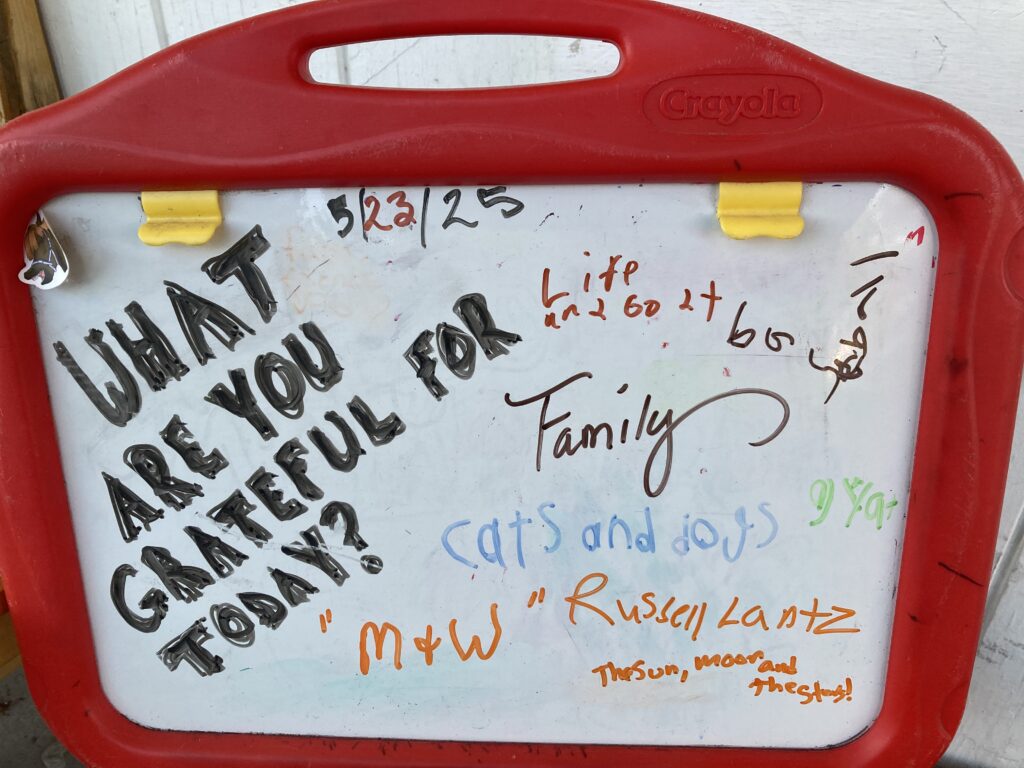 Crayola
5/23/25
WHAT
ARE YOU
GRATEFUL FOR
TODAY?
Life
Family
cats and dogs
"M & W"
Russell Lantz
The Sun, Moon and
the stars!